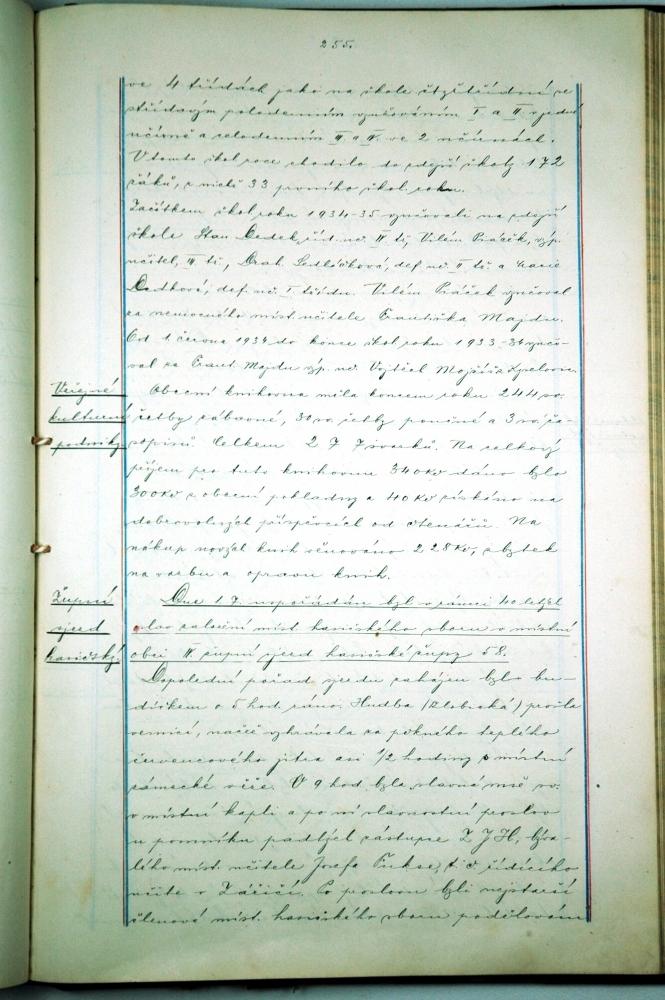 255.
ve 4 třídách jako na škole čtyřtřídní se
střídavým polodenním vyučováním I. a II. v jedné
učírně a celodenním III. a IV. ve 2 učírnách.
V tomto škol. roce chodilo do zdejší školy 172
žáků, z nichž 33 prvního škol. roku.
Začátkem škol. roku 1934-35 vyučovali na zdejší
škole Stan. Dedek, říd. uč. IV tř., Vilém Ptáček, výp.
učitel, III. tř., Drah. Sedláčková, def. uč. II tř. a Marie
Dedková, def. uč. I třídu. Vilém Ptáček vyučoval
za nemocného míst. učitele Františka Majdu.
Od 1. června 1934 do konce škol. roku 1933-34 vyučo-
val za Frant. Majdu výp. uč. Vojtěch
Veřejné
kulturní
podniky.
Obecní knihovna měla koncem roku 244 sv.
četby zábavné, 30 sv. četby poučné a 3 sv. ča-
sopisů. Celkem 277 svazků. Na celkový
příjem pro tuto knihovnu 340 Kč dáno bylo
300 Kč z obecní pokladny a 40 Kč získáno na
dobrovolných příspěvcích od čtenářů. Na
nákup nových knih věnováno 228 Kč, zbytek
na vazbu a opravu knih.
Župní
sjezd
hasičský.
Dne 1.7. uspořádán byl v rámci 40 letých
oslav založení míst. hasičského sboru v místní
obci III. župní sjezd hasičské župy 58.
Dopolední pořad sjezdu zahájen bylo bu-
díčkem o 5 hod. ráno. Hudba prošla
vesnicí, načež vyhrávala za pěkného teplého
červencového jitra asi 1/2 hodiny s místní
zámecké věže. V 9 hod. byla slavná mše sv.
v místní kapli a po ní slavnostní proslov
u pomníku padlých zástupce Z J H, býva-
lého míst. učitele Josefa Fukse, t. č. řídícího
učite v Záříčí. Po proslovu byli nejstarší
členové míst. hasičského sboru podělováni